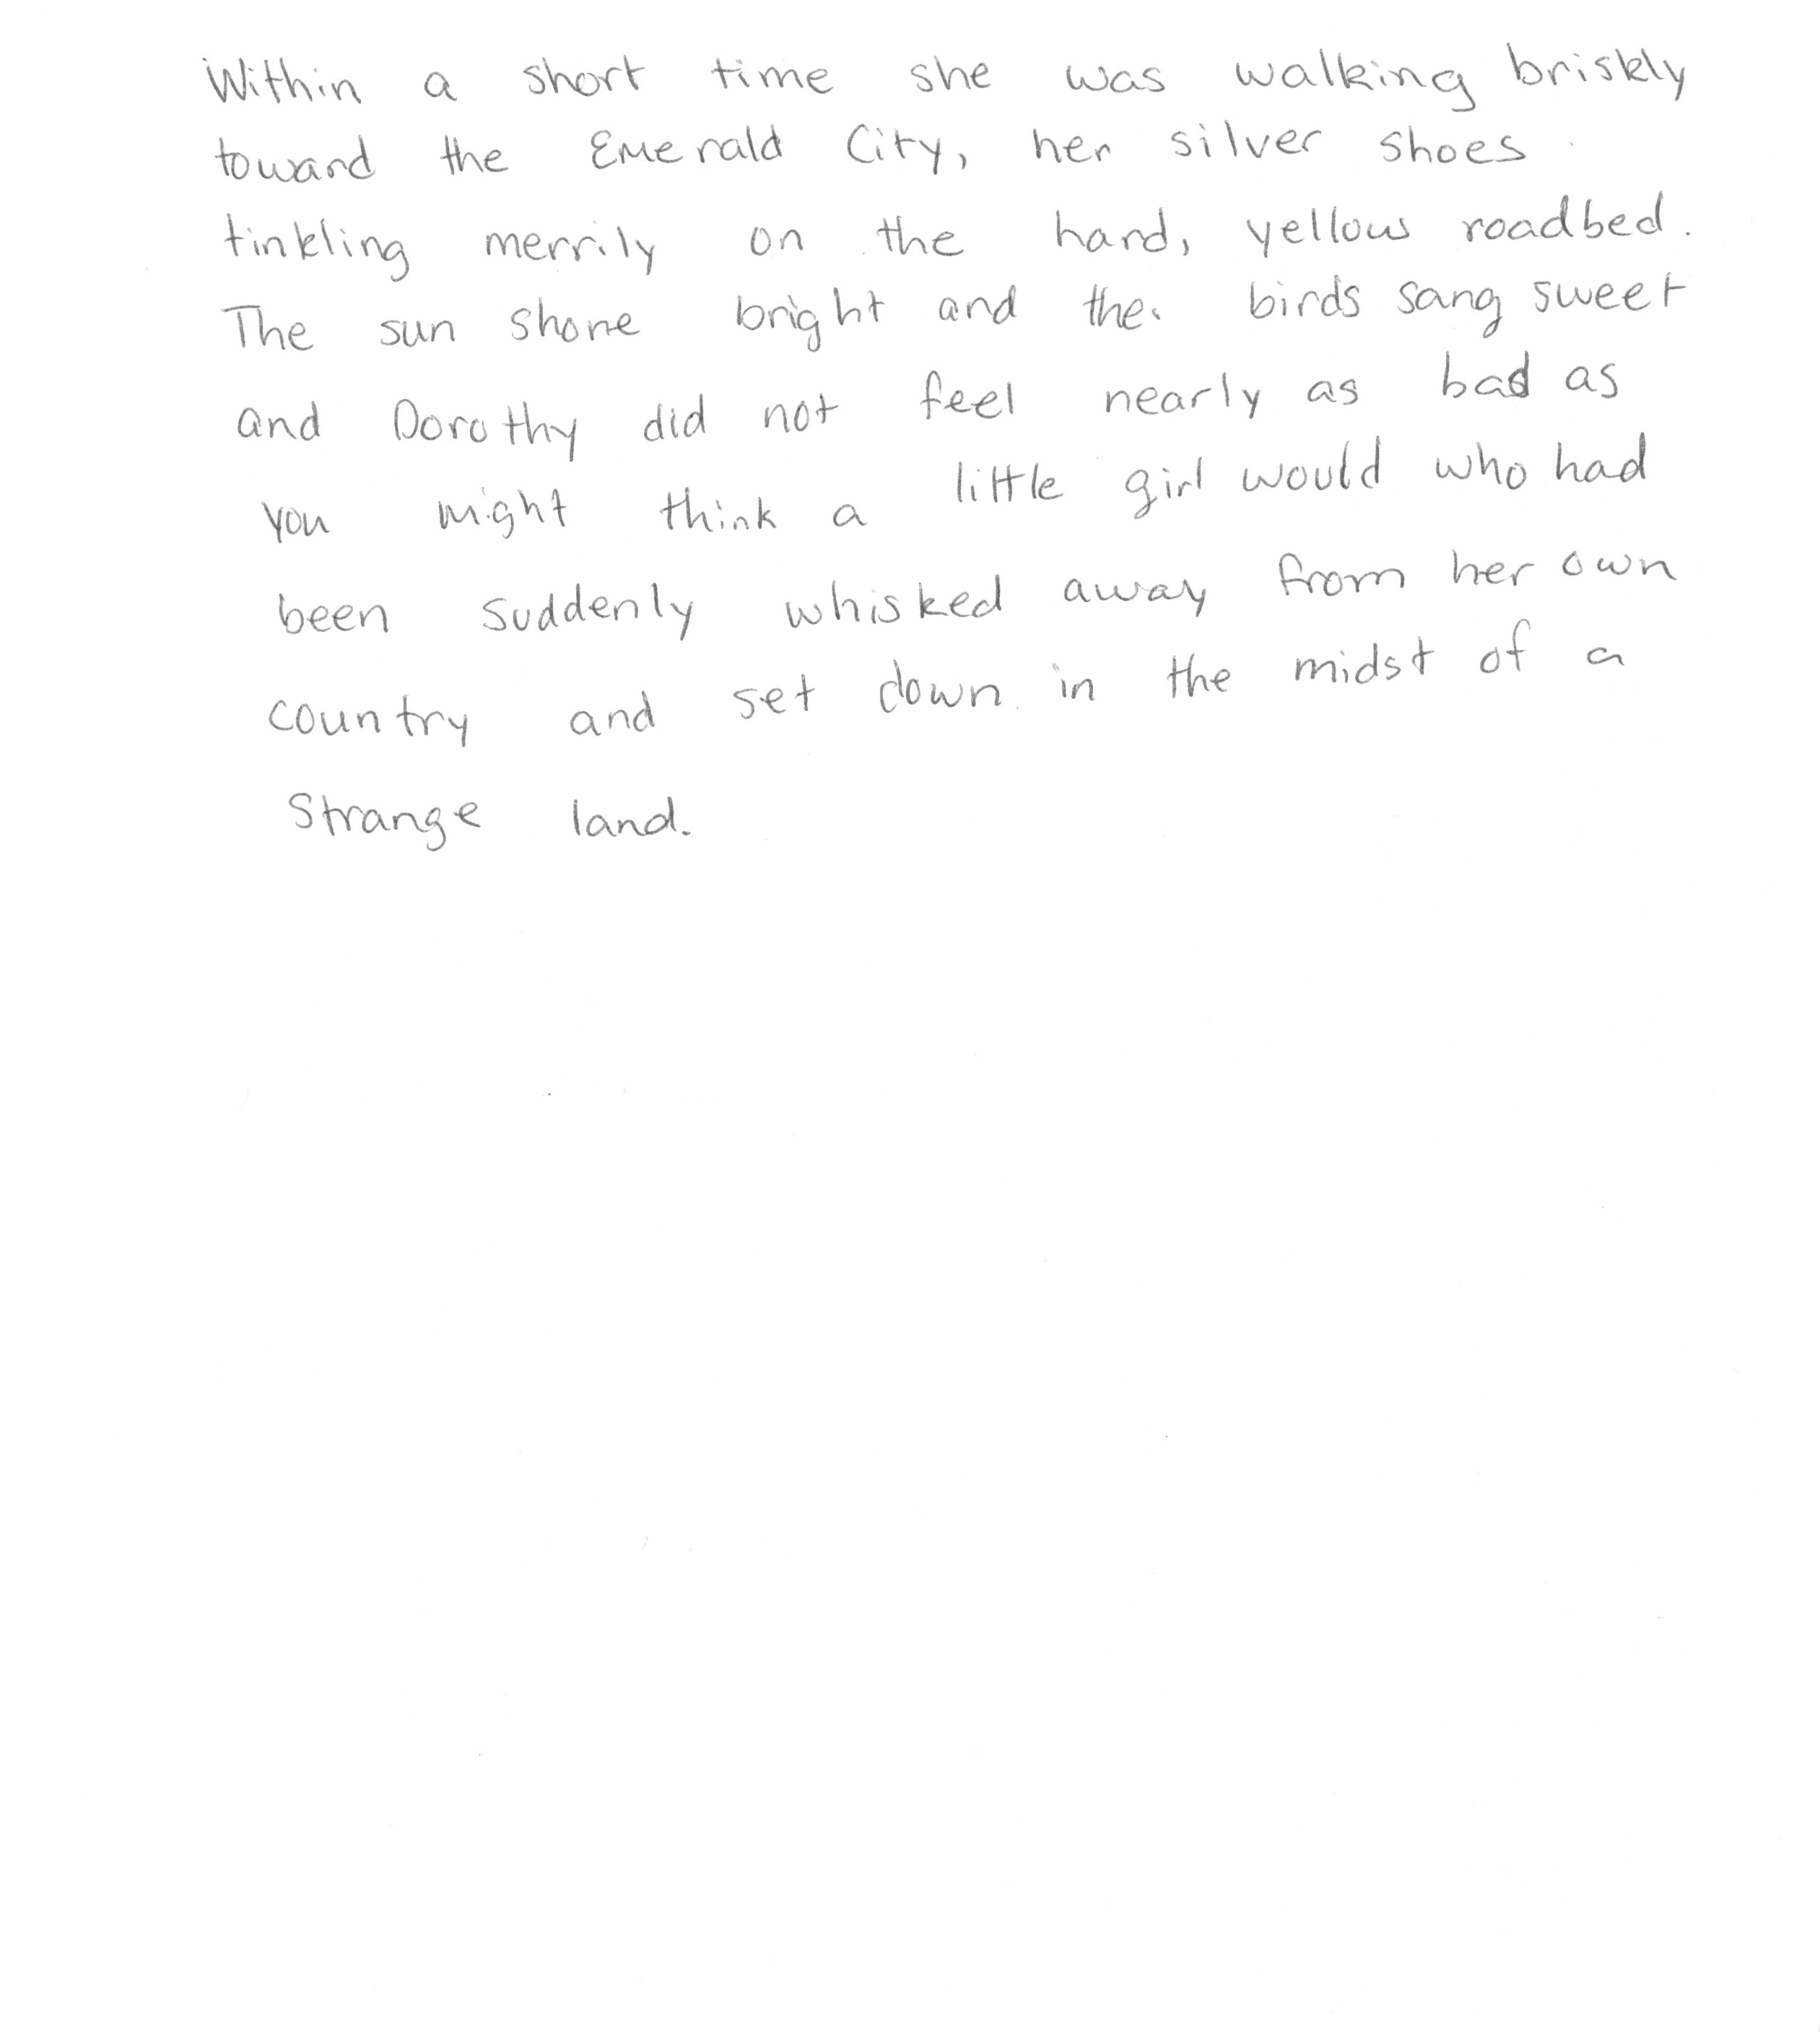 Within a short time she was walking briskly
toward the Emerald City, her silver shoes
tinkling merrily on the hard, yellow roadbed.
The sun shone bright and the birds sang sweet
and Dorothy did not feel nearly as bad as
you might think a little girl would who had
been suddenly whisked away from her own
country and set down in the midst of a
Strange land.